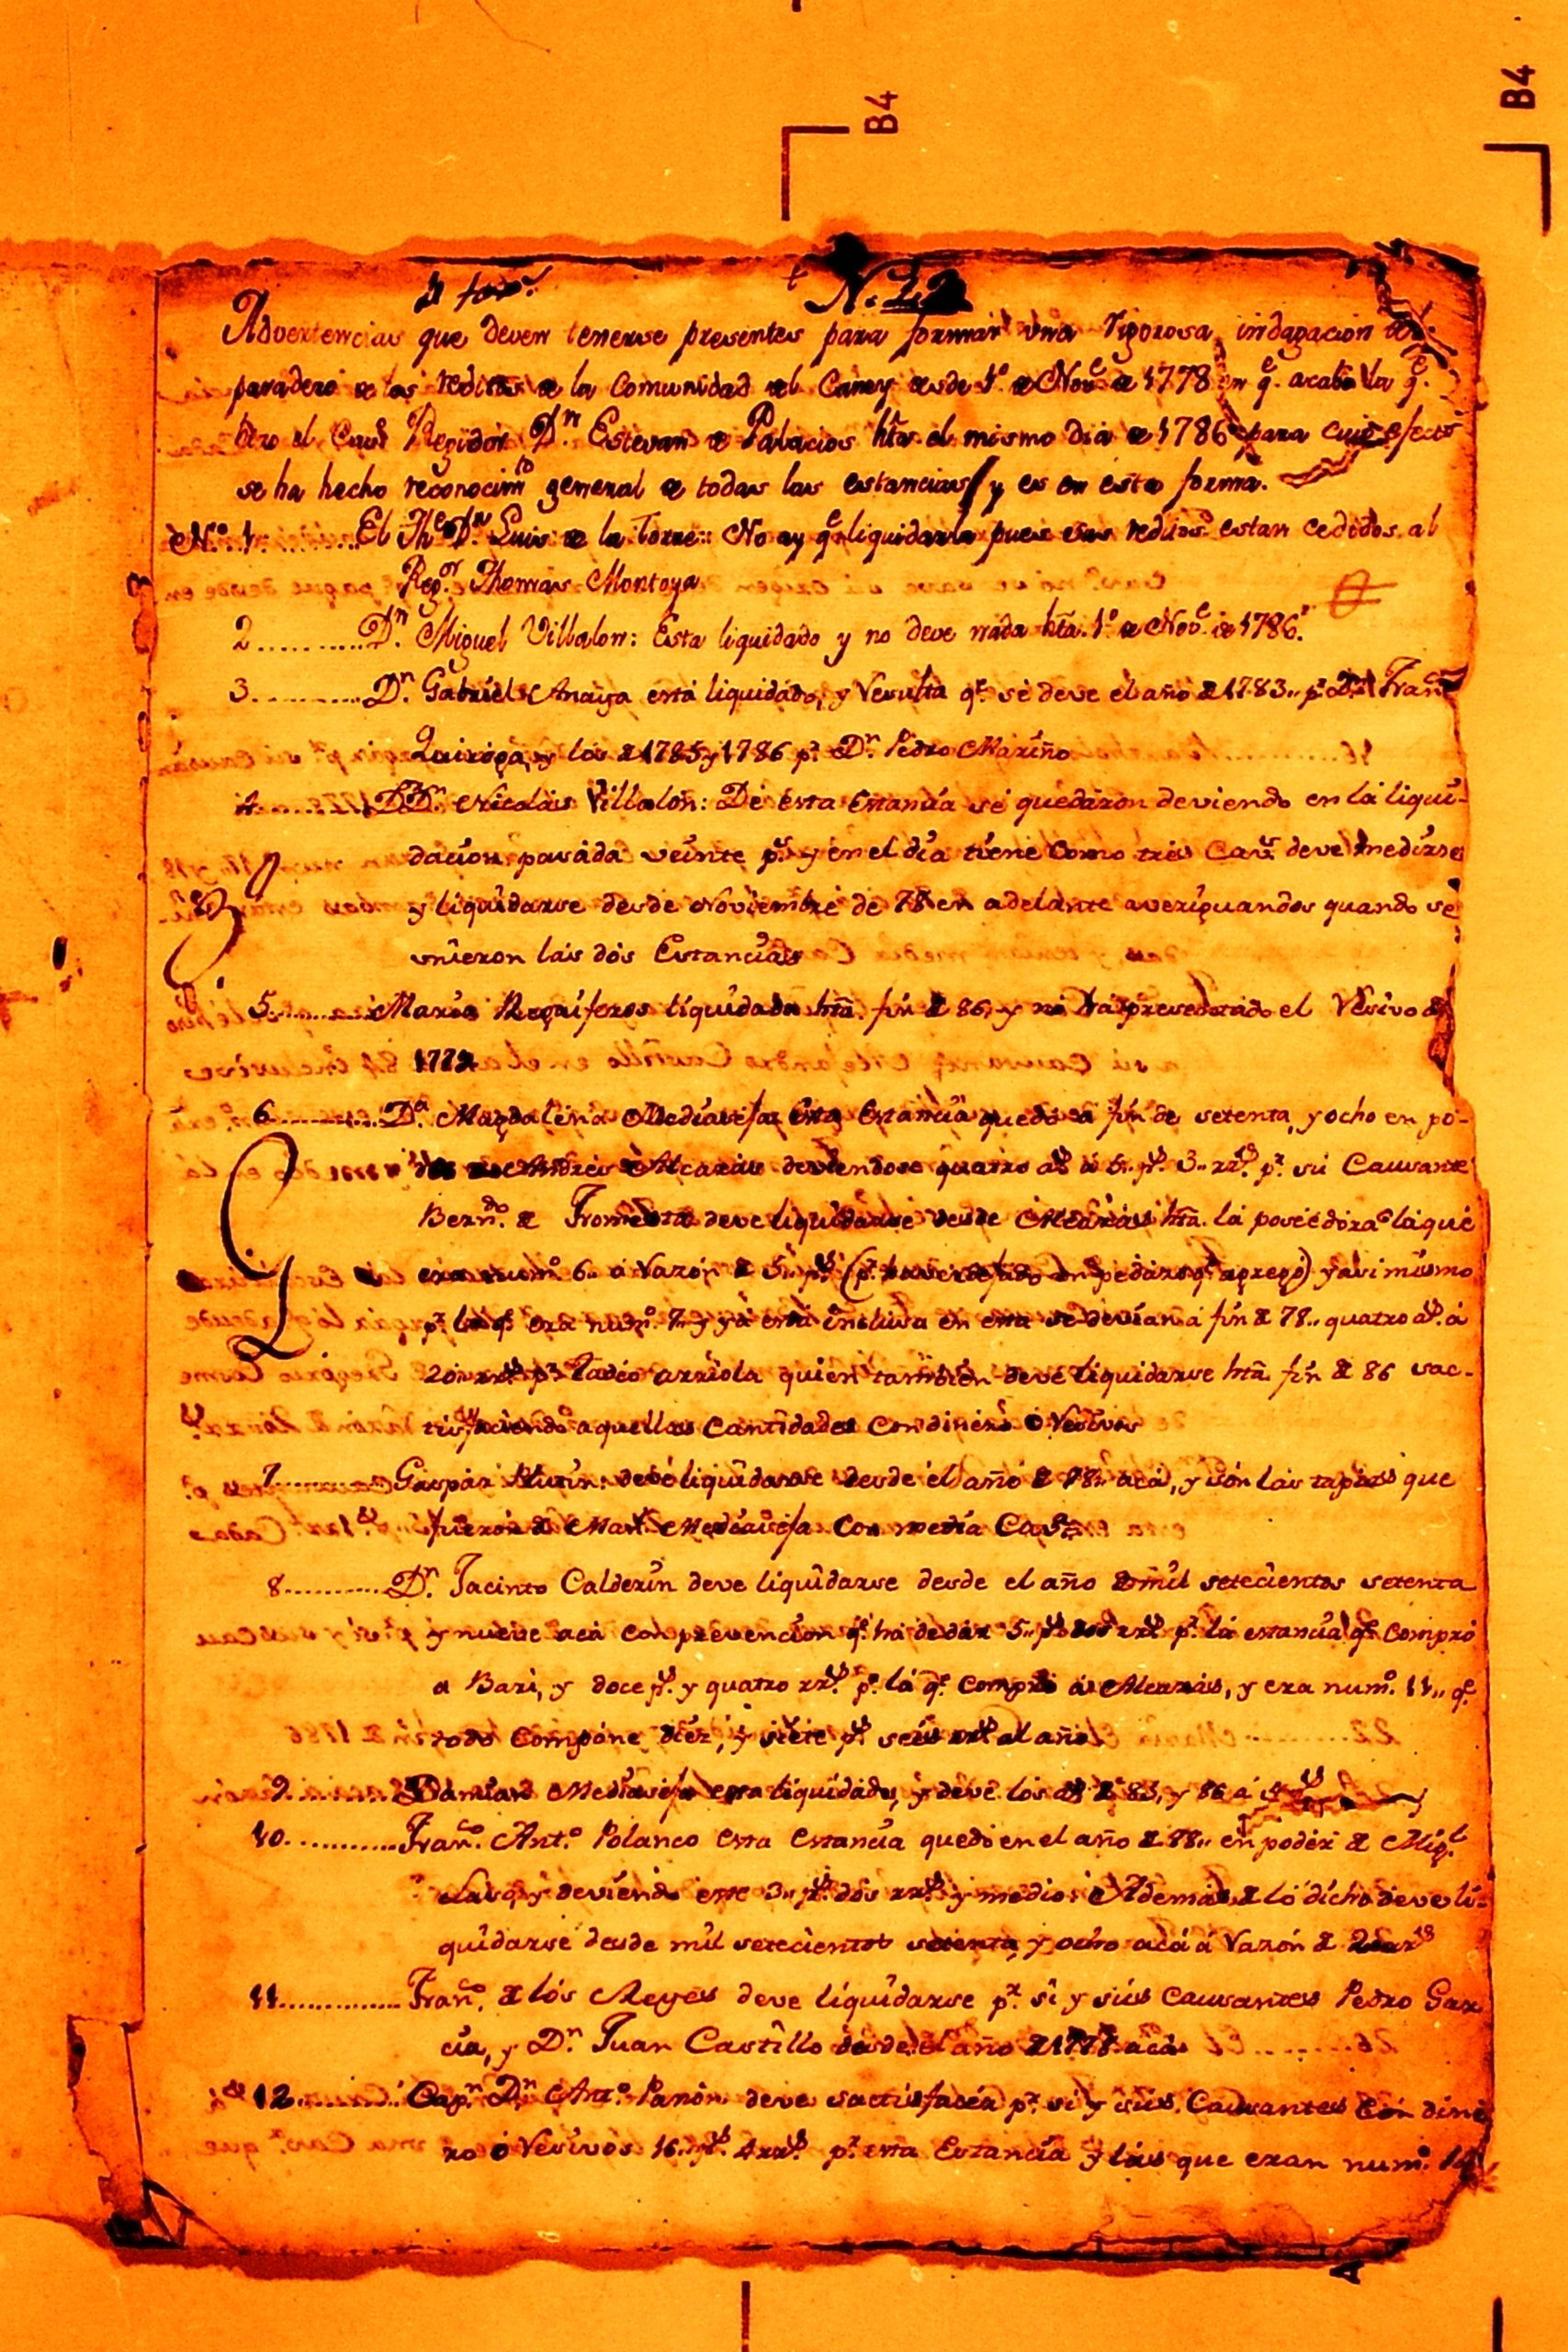 B4
B4
N. 
Advertencias que deven tenerse presentes para formar vna rigorosa indagacion del
paradero de los reditos de la Comunidad del Caney desde 1º de Nove de 1778 en qe. acabó la qe.
hizo el Cavo Regidor Dn Estevan de Palacios hta. el mismo dia de 1786 para cuio efecto
se ha hecho reconocimto general de todas las estancias, y es en esta forma.
N.º 1............El The Dn Luis de la Torre:: No ay qe liquidarla pues sus reditos estan cedidos al
Regor. Thomas Montoya
2............Dn. Miguel Villalon: Esta liquidado y no deve nada hta. 1º de Nove. de 1786.
3..........Dn. Gabriel Anaya está liquidado, y Resulta qe. se deve el año de 1783.. pr. Dn Franco
Quiroga, y los de 1785 y 1786 pr. Dn Pedro Mariño
4..........Dn. Nicolás Villalón: De esta Estancia se quedaron deviendo en la liqui-
dacion pasada veinte ps. y en el dia tiene como tres Cavs. deve medirse
y liquidarse desde Noviembre de 78 en adelante averiguandos quando se
vnieron las dos Estancias
5..........Maria Requiferos liquidada hta. fin de 86, y no ha presentado el Resivo de
177
6..........Da. Magdalena Mediavifa esta Estancia quedó a fin de setenta, y ocho en po-
der de Andrés Alcarás deviendose quatro as á 5.. ps. 3.. rrs. pr. su Causante
Bernrdo. de Fromesta deve liquidarse desde Alcarás hta. la poseedora la que
era numo. 6.. a Razón de 5.. ps. (pr. haver dejado un pedazo qe. agregó) y asi mismo
pr. la qe. era numo. 7.. y ya está inclusa en esta se devian a fin de 78.. quatro as. á
20 rrs. pr. Tadeo arriola quien tambien deve liquidarse hta. fin de 86 sac-
tisfaciendo aquellas Cantidades con dinero ó Resivos
7..........Gaspar : deve liquidarse desde el año de 78.. acá, y són las tapias que
fueron de Mart. Mediavifa con media Cava.
8...........Dn. Jacinto Calderin deve liquidarse desde el año de mil setecientos setenta
y nueve acá con prevencion qe. há de dár 5.. ps. dos rrs. pr. la estancia qe. compró
a Bari, y doce ps. y quatro rrs. pr. la qe. compró a Alcarás, y era numo. 11.. qe.
todo compone diez, y siete ps. seis rrs. al año
9..........Damian Mediavifa esta liquidado, y deve los as de 85, y 86 á
10............Franco. Anto. Polanco esta Estancia quedó en el año de 78.. en podér de Migl.
y deviendo este 3.. ps. dos rrs. y medio: Además de lo dicho deve li-
quidarse desde mil setecientos setenta y ocho acá á Razón de 20 rrs
11..............Franco. de lós Reyes deve liquidarse pr. sí y sús Causantes Pedro Gar
cia, y Dn. Juan Castillo desde el año de 1778 acá
12..........Capn. Dn Anto. Panón deve sactisfacér pr. sí y sús Causantes con dine
ro ó Resivos 16.. ps. 4 rrs. pr. esta Estancia y las que eran numo. 14